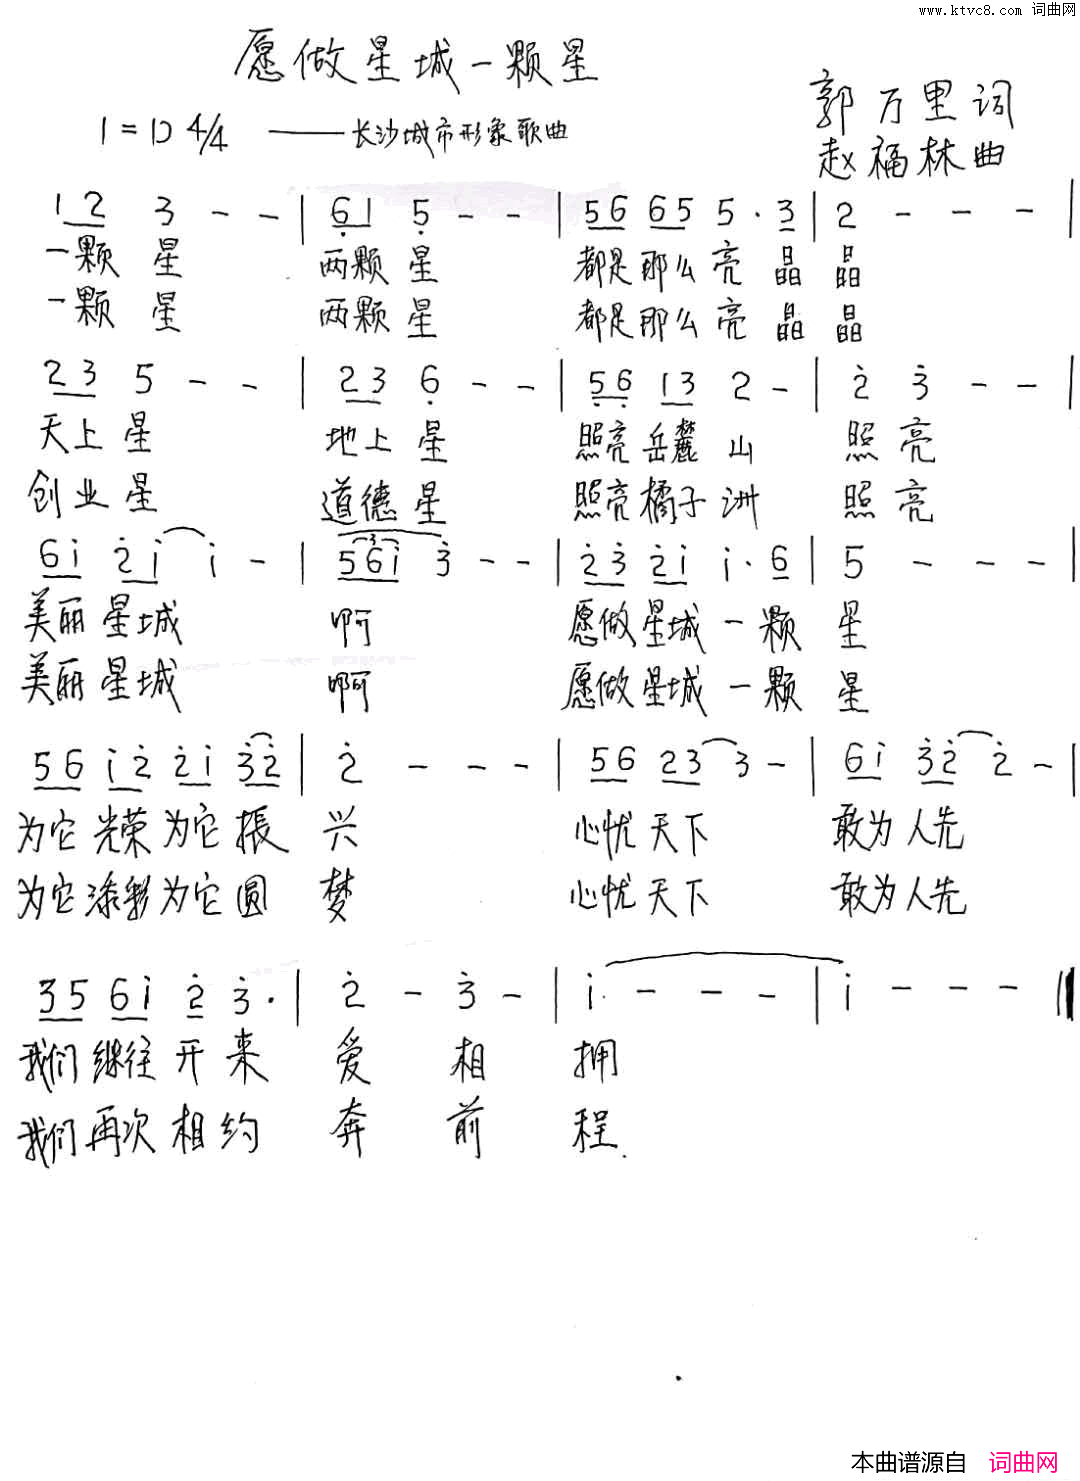 www.ktvc8.com 词曲网
愿做星城一颗星
郭万里词
1=D 4/4 ——长沙城市形象歌曲
赵福林曲
1 2 3 - - | 6 1 5 - - | 5 6 6 5 5 · 3 | 2 - - - |
一颗 星 两颗 星 都是那么亮 晶 晶
一颗 星 两颗 星 都是那么亮 晶 晶
2 3 5 - - | 2 3 6 - - | 5 6 1 3 2 - | 2 3 - - |
天上星 地上星 照亮岳麓山 照亮
创业星 道德星 照亮橘子洲 照亮
6 i 2 i i - | 5 6 i 3 - - | 2 3 2 i i · 6 | 5 - - - |
美丽星城 啊 愿做星城一颗 星
美丽星城 啊 愿做星城一颗 星
5 6 i 2 2 i 3 2 | 2 - - - | 5 6 2 3 3 - | 6 i 3 2 2 - |
为它光荣为它振 兴 心忧天下 敢为人先
为它添彩为它圆 梦 心忧天下 敢为人先
3 5 6 i 2 3 · | 2 - 3 - | i - - - | i - - - ‖
我们继往开来 爱 相 拥
我们再次相约 奔 前 程
本曲谱源自 词曲网